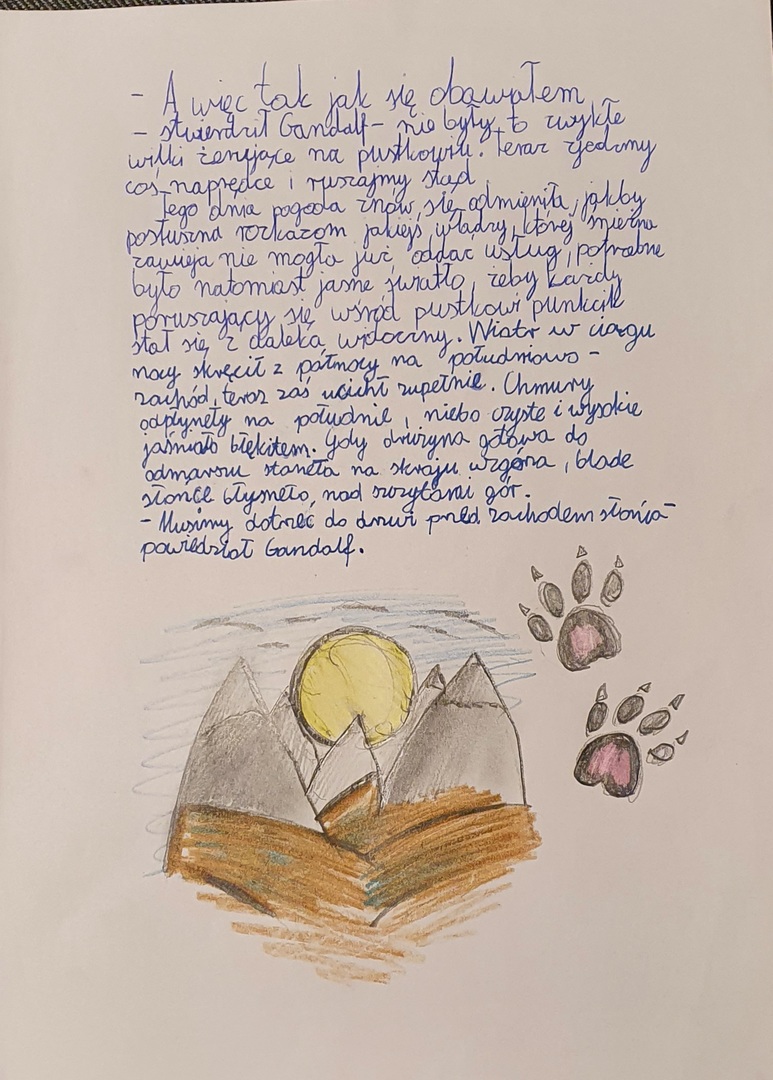 - A więc tak jak się obawiałem
- stwierdził Gandalf - nie były to zwykłe
wilki żerujące na pustkowiu. Teraz zjedzmy
coś naprędce i ruszajmy stąd
Tego dnia pogoda znów się odmieniła, jakby
posłuszna rozkazom jakiejś władzy, której śnieżna
zawieja nie mogła już oddać usług, potrzebne
było natomiast jasne światło, żeby każdy
poruszający się wśród pustkowi punkcik
stał się z daleka widoczny. Wiatr w ciągu
nocy skręcił z północy na południowo -
zachód, teraz zaś ucichł zupełnie. Chmury
odpłynęły na południe, niebo czyste i wysokie
jaśniało błękitem. Gdy drużyna gotowa do
odmarszu stanęła na skraju wzgórza, blade
słońce błysnęło nad szczytami gór.
- Musimy dotrzeć do drzwi przed zachodem słońca -
powiedział Gandalf.